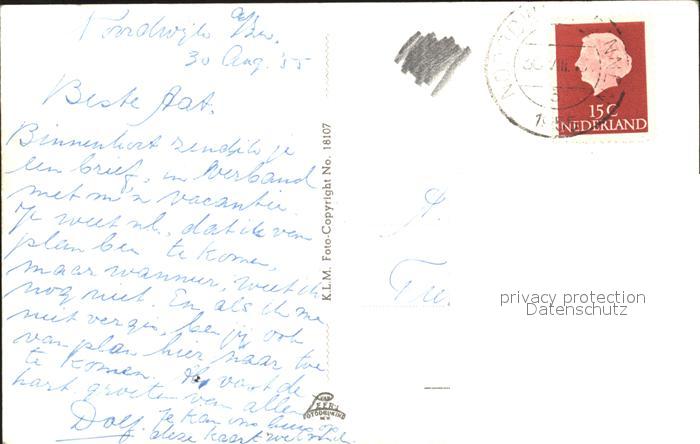 Noordwijk a/Zee
30 Aug. '55
Beste Aat.
Binnenkort zend ik je
een brief, in verband
met m'n vacantie.
Je weet nl., dat ik van
plan ben te komen,
maar wanneer, weet ik
nog niet. En als ik me
niet vergis, ben jij ook
van plan hier naar toe
te komen. van de
hart. groeten van allen
Dolf. Je kan ons huis op
deze kaart wel
K.L.M. Foto-Copyright No. 18107
FOTODRUKIND
N.V.
NOORDWIJK
30.VIII.
1955
15C
NEDERLAND
A.
privacy protection
Datenschutz